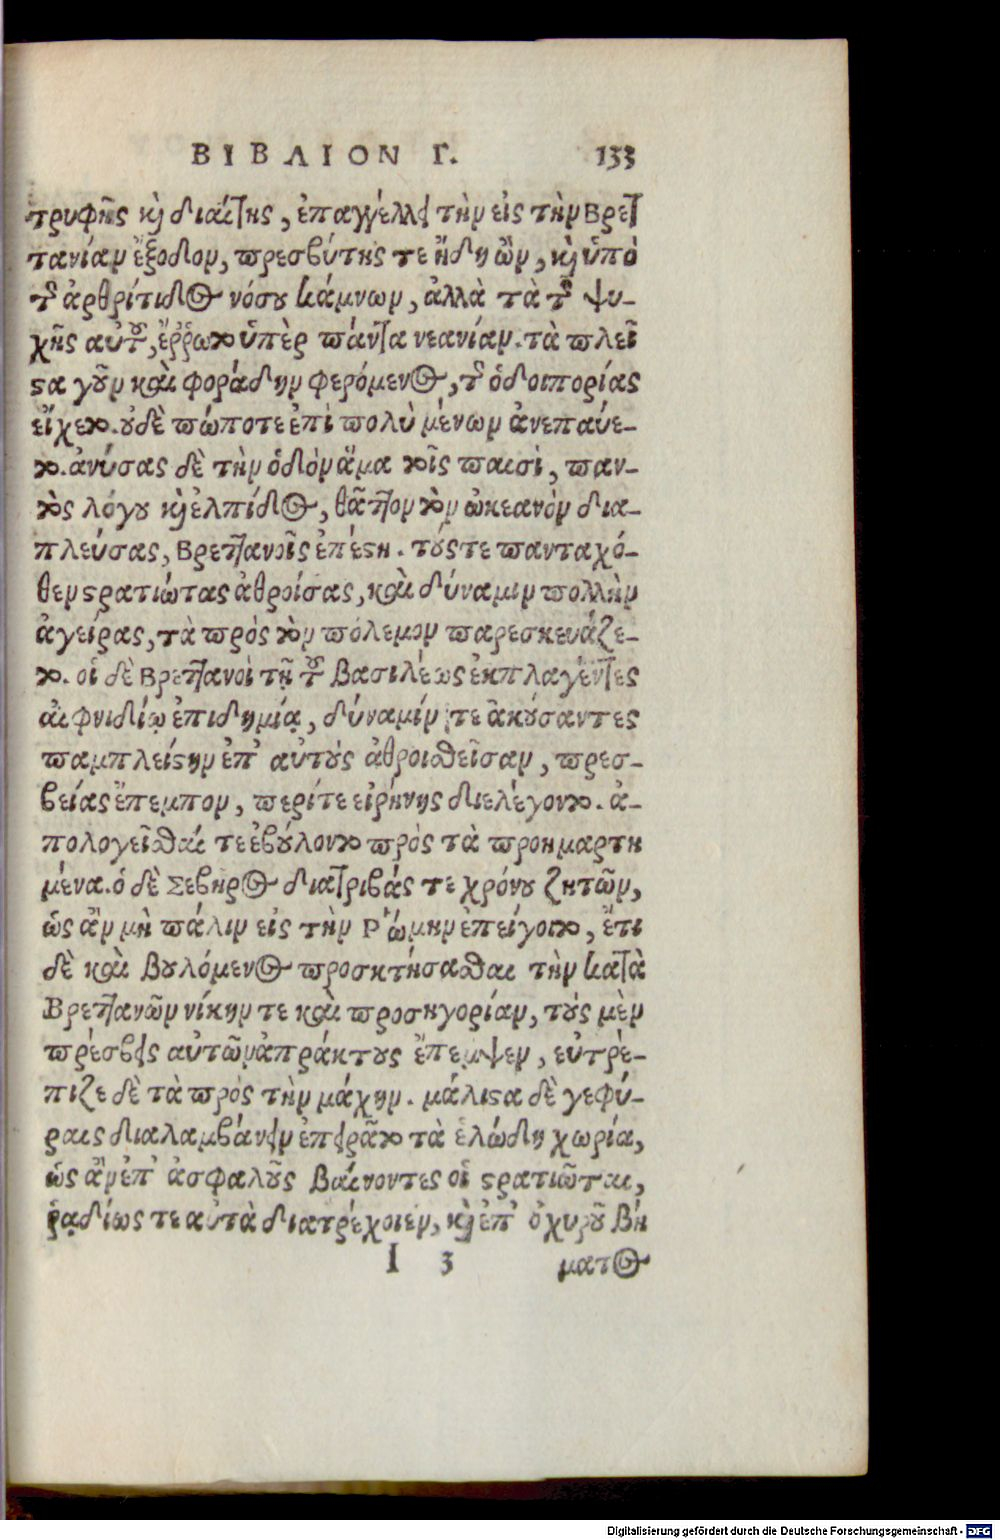 ΒΙΒΛΙΟΝ Γ. 133
τρυφῆς κὶ διαίτης, ἐπαγγέλλει τὴν εἰς τὴν Βρετ
τανίαν ἔξοδον, πρεσβύτης τε ἤδη ὢν, κὶ ὑπὸ
τῆς ἀρθρίτιδος νόσου κάμνων, ἀλλὰ τὰ τῆς ψυ-
χῆς αὐτοῦ, ἔῤῥωτο ὑπὲρ πάντα νεανίαν. τὰ πλεῖ
στα γοῦν καὶ φοράδην φερόμενος, τῆς ὁδοιπορίας
εἴχετο. οὐδὲ πώποτε ἐπὶ πολὺ μένων ἀνεπαύε-
το. ἀνύσας δὲ τὴν ὁδὸν ἅμα τοῖς παισὶ, παν-
τὸς λόγου κὶ ἐλπίδος, θᾶττον τὸν ὠκεανὸν δια-
πλεύσας, Βρεττανοῖς ἐπέστη. τούς τε πανταχό-
θεν στρατιώτας ἀθροίσας, καὶ δύναμιν πολλὴν
ἀγείρας, τὰ πρὸς τὸν πόλεμον παρεσκευάζε-
το. οἱ δὲ Βρεττανοὶ τῇ τοῦ βασιλέως ἐκπλαγέντες
αἰφνιδίῳ ἐπιδημίᾳ, δύναμίν τε ἀκούσαντες
παμπλείστην ἐπ' αὐτοὺς ἀθροισθεῖσαν, πρεσ-
βείας ἔπεμπον, περί τε εἰρήνης διελέγοντο. ἀ-
πολογεῖσθαί τε ἐβούλοντο πρὸς τὰ προημαρτη
μένα. ὁ δὲ Σεβηρος διατριβάς τε χρόνου ζητῶν,
ὡς ἂν μὴ πάλιν εἰς τὴν Ρ῾ώμην ἐπείγοιτο, ἔτι
δὲ καὶ βουλόμενος προσκτήσασθαι τὴν κατὰ
Βρεττανῶν νίκην τε καὶ προσηγορίαν, τοὺς μὲν
πρέσβεις αὐτῶν ἀπράκτους ἔπεμψεν, εὐτρέ-
πιζε δὲ τὰ πρὸς τὴν μάχην. μάλιστα δὲ γεφύ-
ραις διαλαμβάνειν ἐπειρᾶτο τὰ ἑλώδη χωρία,
ὡς ἂν ἐπ' ἀσφαλοῦς βαίνοντες οἱ στρατιῶται,
ῥᾳδίως τε αὐτὰ διατρέχοιεν, κὶ ἐπ' ὀχυροῦ βή
I 3 ματος
Digitalisierung gefördert durch die Deutsche Forschungsgemeinschaft - DFG